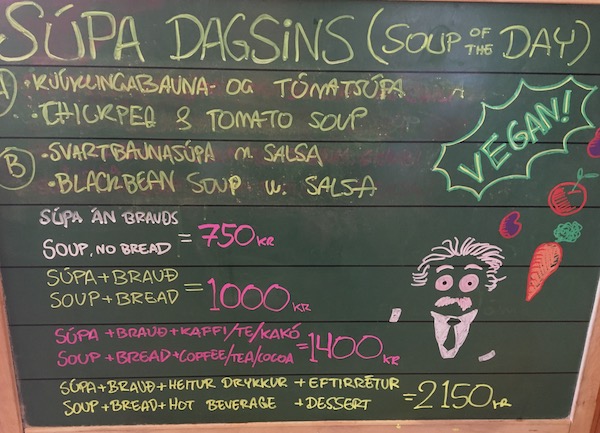 SÚPA DAGSINS (SOUP OF THE DAY)
A) • KJÚKLINGABAUNA- OG TÓMATSÚPA
• CHICKPEA & TOMATO SOUP
VEGAN!
B) • SVARTBAUNASÚPA m. SALSA
• BLACKBEAN SOUP w. SALSA
SÚPA ÁN BRAUÐS
SOUP, NO BREAD = 750 KR
SÚPA+BRAUÐ
SOUP+BREAD = 1000 KR
SÚPA+BRAUÐ+KAFFI/TE/KAKÓ
SOUP+BREAD+COFFEE/TEA/COCOA =1400 KR
SÚPA+BRAUÐ+HEITUR DRYKKUR +EFTIRRÉTUR
SOUP+BREAD+HOT BEVERAGE +DESSERT =2150 KR